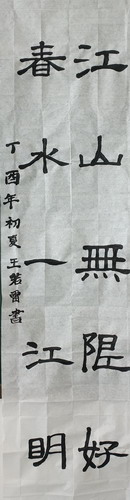 江山無限好
春水一江明
丁酉年初夏王若雷書